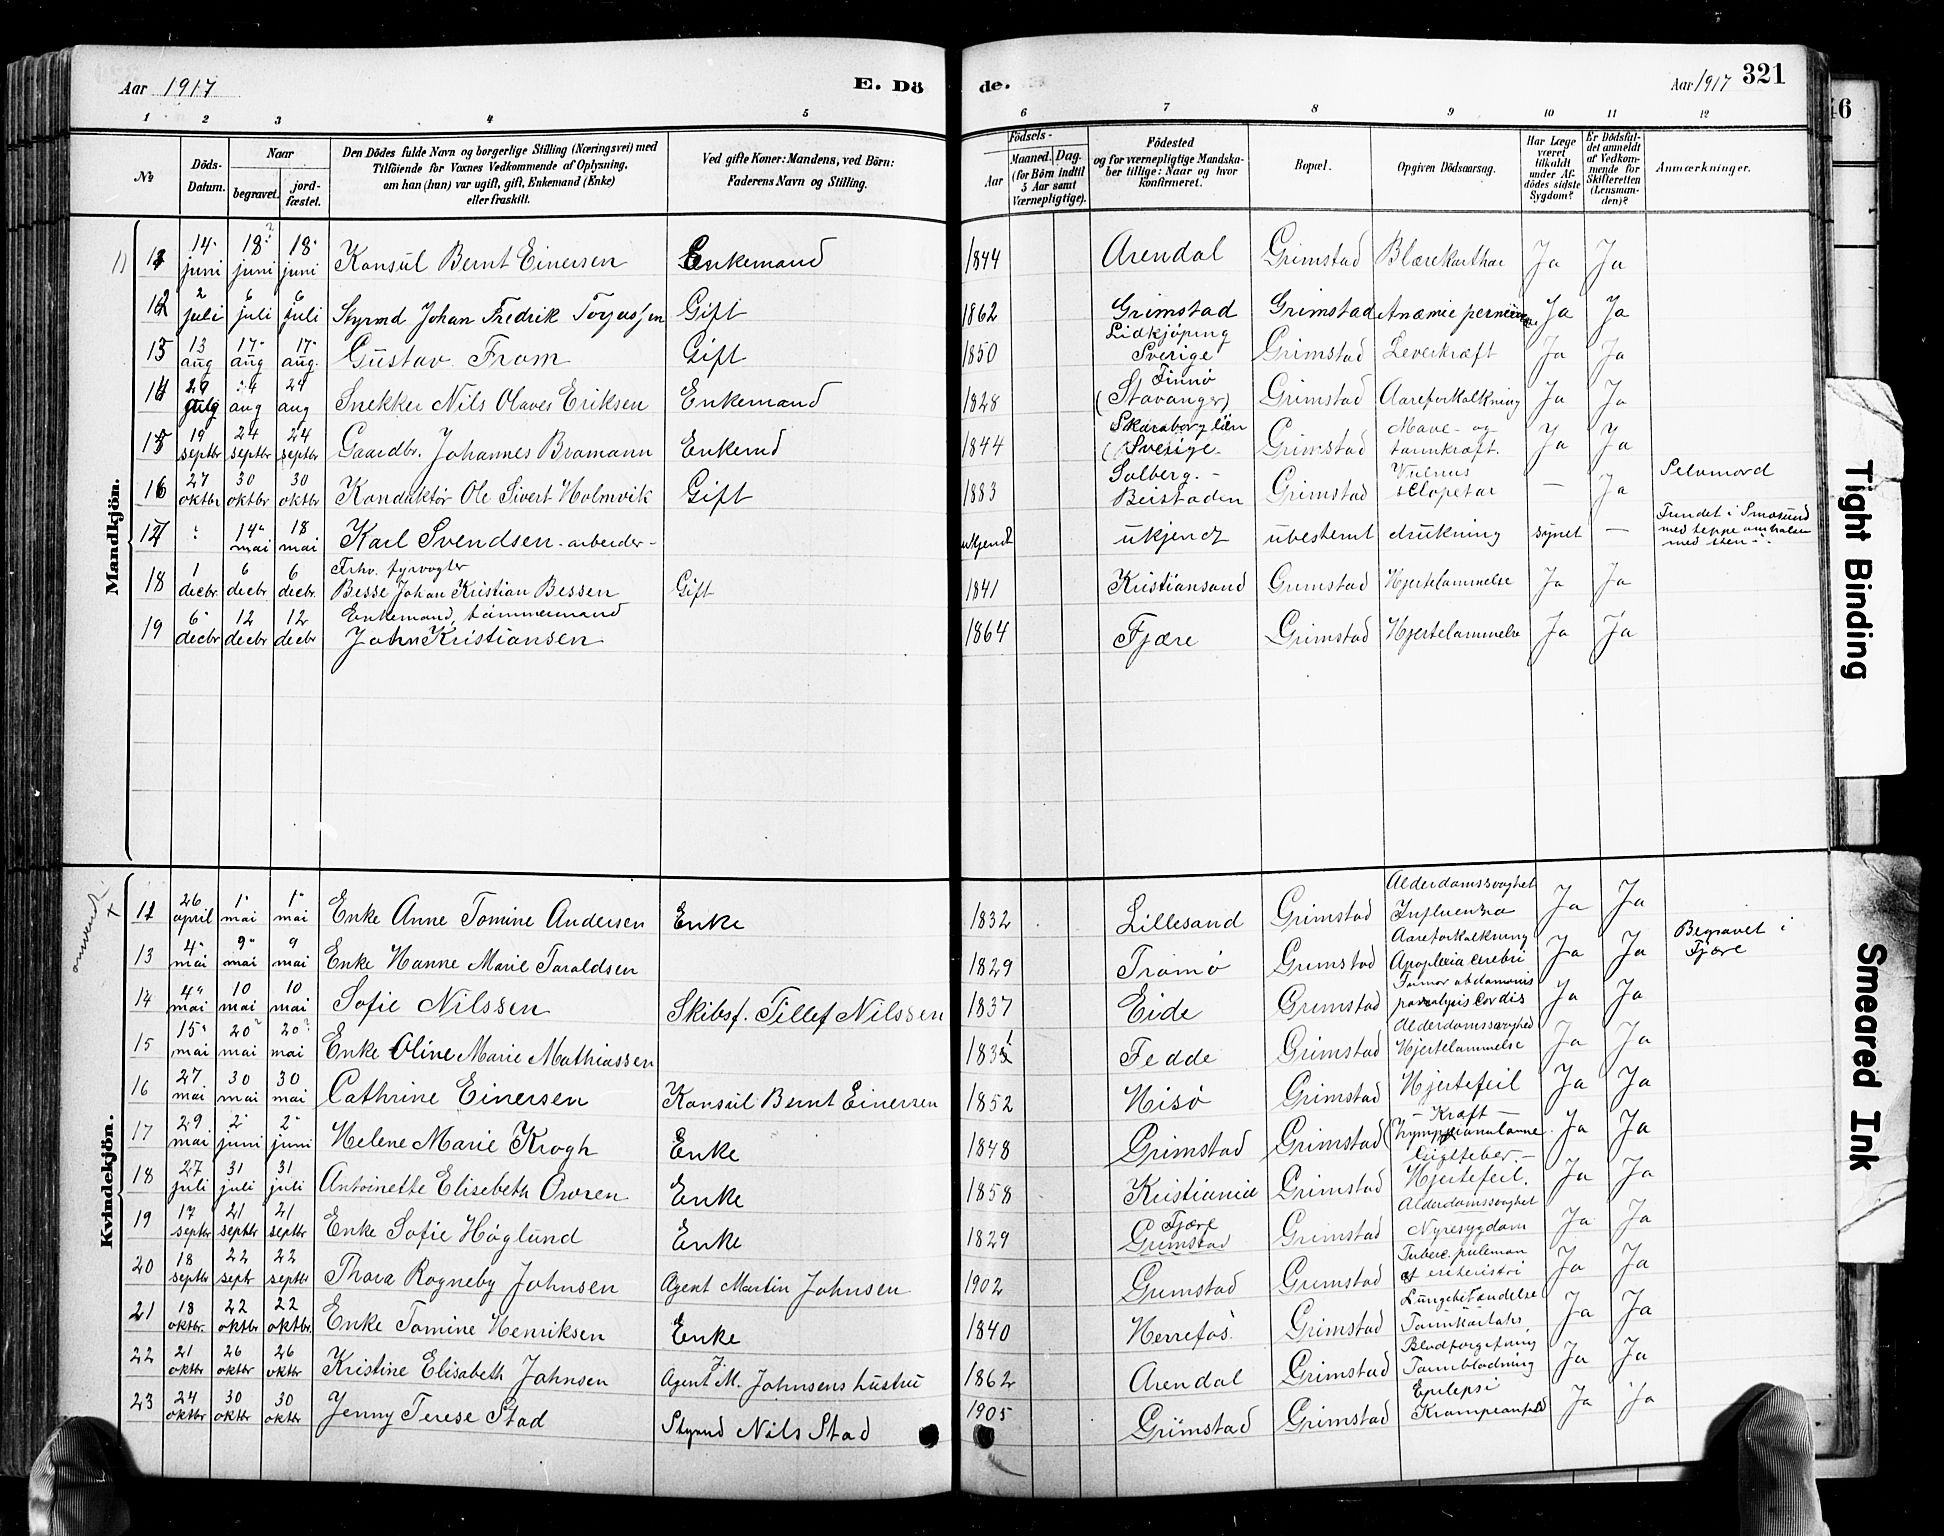 Aar 1917 E. Dö
de. Aar 1917 321
1 2 3 4 5 6 7 8 9 10 11 12
No Döds-Datum. Naar begravet. jordfæstet. Den Dödes fulde Navn og borgerlige Stilling (Næringsvei) med Tilföiende for Voxnes Vedkommende af Oplysning, om han (hun) var ugift, gift, Enkemand (Enke) eller fraskilt. Ved gifte Koner: Mandens, ved Börn: Faderens Navn og Stilling.
Födsels- Aar Maaned. Dag. (for Börn indtil 5 Aar samt Værnepligtige). Födested og for værnepligtige Mandskaber tillige: Naar og hvor konfirmeret. Bopæl. Opgiven Dödsaarsag. Har Læge været tilkaldt under Afdödes sidste Sygdom? Er Dödsfaldet anmeldt af Vedkommende for Skifteretten (Lensmanden)? Anmærkninger.
Mandkjön.
11 14 juni 18 juni 18 juni Konsul Bernt Einersen Enkemand 1844 Arendal Grimstad Blærekarthar Ja Ja
12 2 juli 6 juli 6 juli Styrmd Johan Fredrik Torjussen Gift 1862 Grimstad Grimstad Anæmie Ja Ja
13 aug 17 aug 17 aug. Gustav From Gift 1850 Lidkjöping Sverige Grimstad Leverkræft Ja Ja
14 29 4 aug 24 aug Snekker Nils Olaves Eriksen Enkemand 1828 Finnø (Stavanger) Grimstad Aareforkalkning Ja Ja
15 19 septbr 24 septbr 24 septbr Gaardbr. Johannes Bramann Enkemd 1844 Skaraborg län (Sverige. Grimstad Mave- og tarmkræft. Ja Ja
16 27 oktbr 30 oktbr 30 oktbr Konduktør Ole Sivert Holmvik Gift 1883 Solberg.- Beistaden Grimstad Vulnus sclopetar — Ja Selvmord
17 14 mai 18 mai Karl Svendsen - arbeider - ukjendt ukjendt ubestemt drukning synet — Fundet i Smøsund med teppe om halsen med sten
18 1 decbr. 6 decbr. 6 decbr. Frhv. fyrvogter Besse Johan Kristian Bessen Gift 1841 Kristiansand Grimstad Hjertelammelse Ja Ja
19 6 decbr 12 decbr 12 decbr Enkemand, tömmermand John Kristiansen 1864 Fjære Grimstad Hjertelammelse Ja Ja
Kvindekjön.
26 april 1 mai 1 mai Enke Anne Tomine Andersen Enke 1832 Lillesand Grimstad Alderdomssvaghet Influenza Ja Ja
13 4 mai 9 mai 9 mai Enke Hanne Marie Taraldsen 1829 Tromø Grimstad Aareforkalkning Apoplexia cerebri Ja Ja Begravet i Fjære
14 4 mai 10 mai 10 mai Sofie Nilssen Skibsf. Tellef Nilssen 1837 Eide Grimstad Tumor abdominis paralysis cordis Ja Ja
15 15 mai 20 mai 20 mai Enke Oline Marie Mathiassen 1831 Fedde Grimstad Alderdomssvaghed Hjertelammelse Ja Ja
16 27 mai 30 mai 30 mai Cathrine Einersen Konsul Bernt Einersen 1852 Hisø Grimstad Hjertefeil Ja Ja
17 29 mai 2 juni 2 juni Helene Marie Krogh Enke 1848 Grimstad Grimstad - Kræft - Ja Ja
18 27 juli 31 juli 31 juli Antoinette Elisebeth Ovren Enke 1858 Kristiania Grimstad Gigtfeber.- Hjertefeil. Ja Ja
19 17 septbr 21 septbr 21 septbr Enke Sofie Höglund Enke 1829 Fjære Grimstad Grimstad Alderdomssvaghet Nyresygdom Ja Ja
20 18 septbr 22 septbr 22 septbr Thora Rogneby Johnsen Agent Martin Johnsen 1902 Grimstad Grimstad Tuberc. pulmon Ja Ja
21 18 oktbr. 22 oktbr 22 oktbr. Enke Tomine Henriksen Enke 1840 Herrefos. Grimstad Lungebetændelse Ja Ja
22 21 oktbr 26 oktbr 26 oktbr Kristine Elisabeth Johnsen Agent M. Johnsens hustru 1862 Arendal Grimstad Blodforgiftning Tarmblødning Ja Ja
23 24 oktbr 30 oktbr 30 oktbr Jenny Terese Stad Styrmd Nils Stad 1905 Grimstad Grimstad Epilepsi Krampeanfald Ja Ja
Tight Binding
Smeared Ink